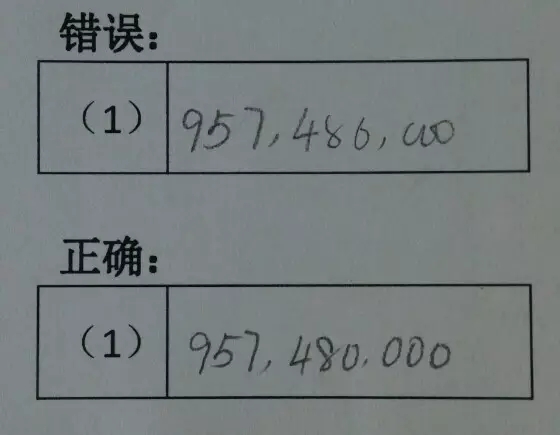 错误：
（1） 957,486,000
正确：
（1） 957,480.000